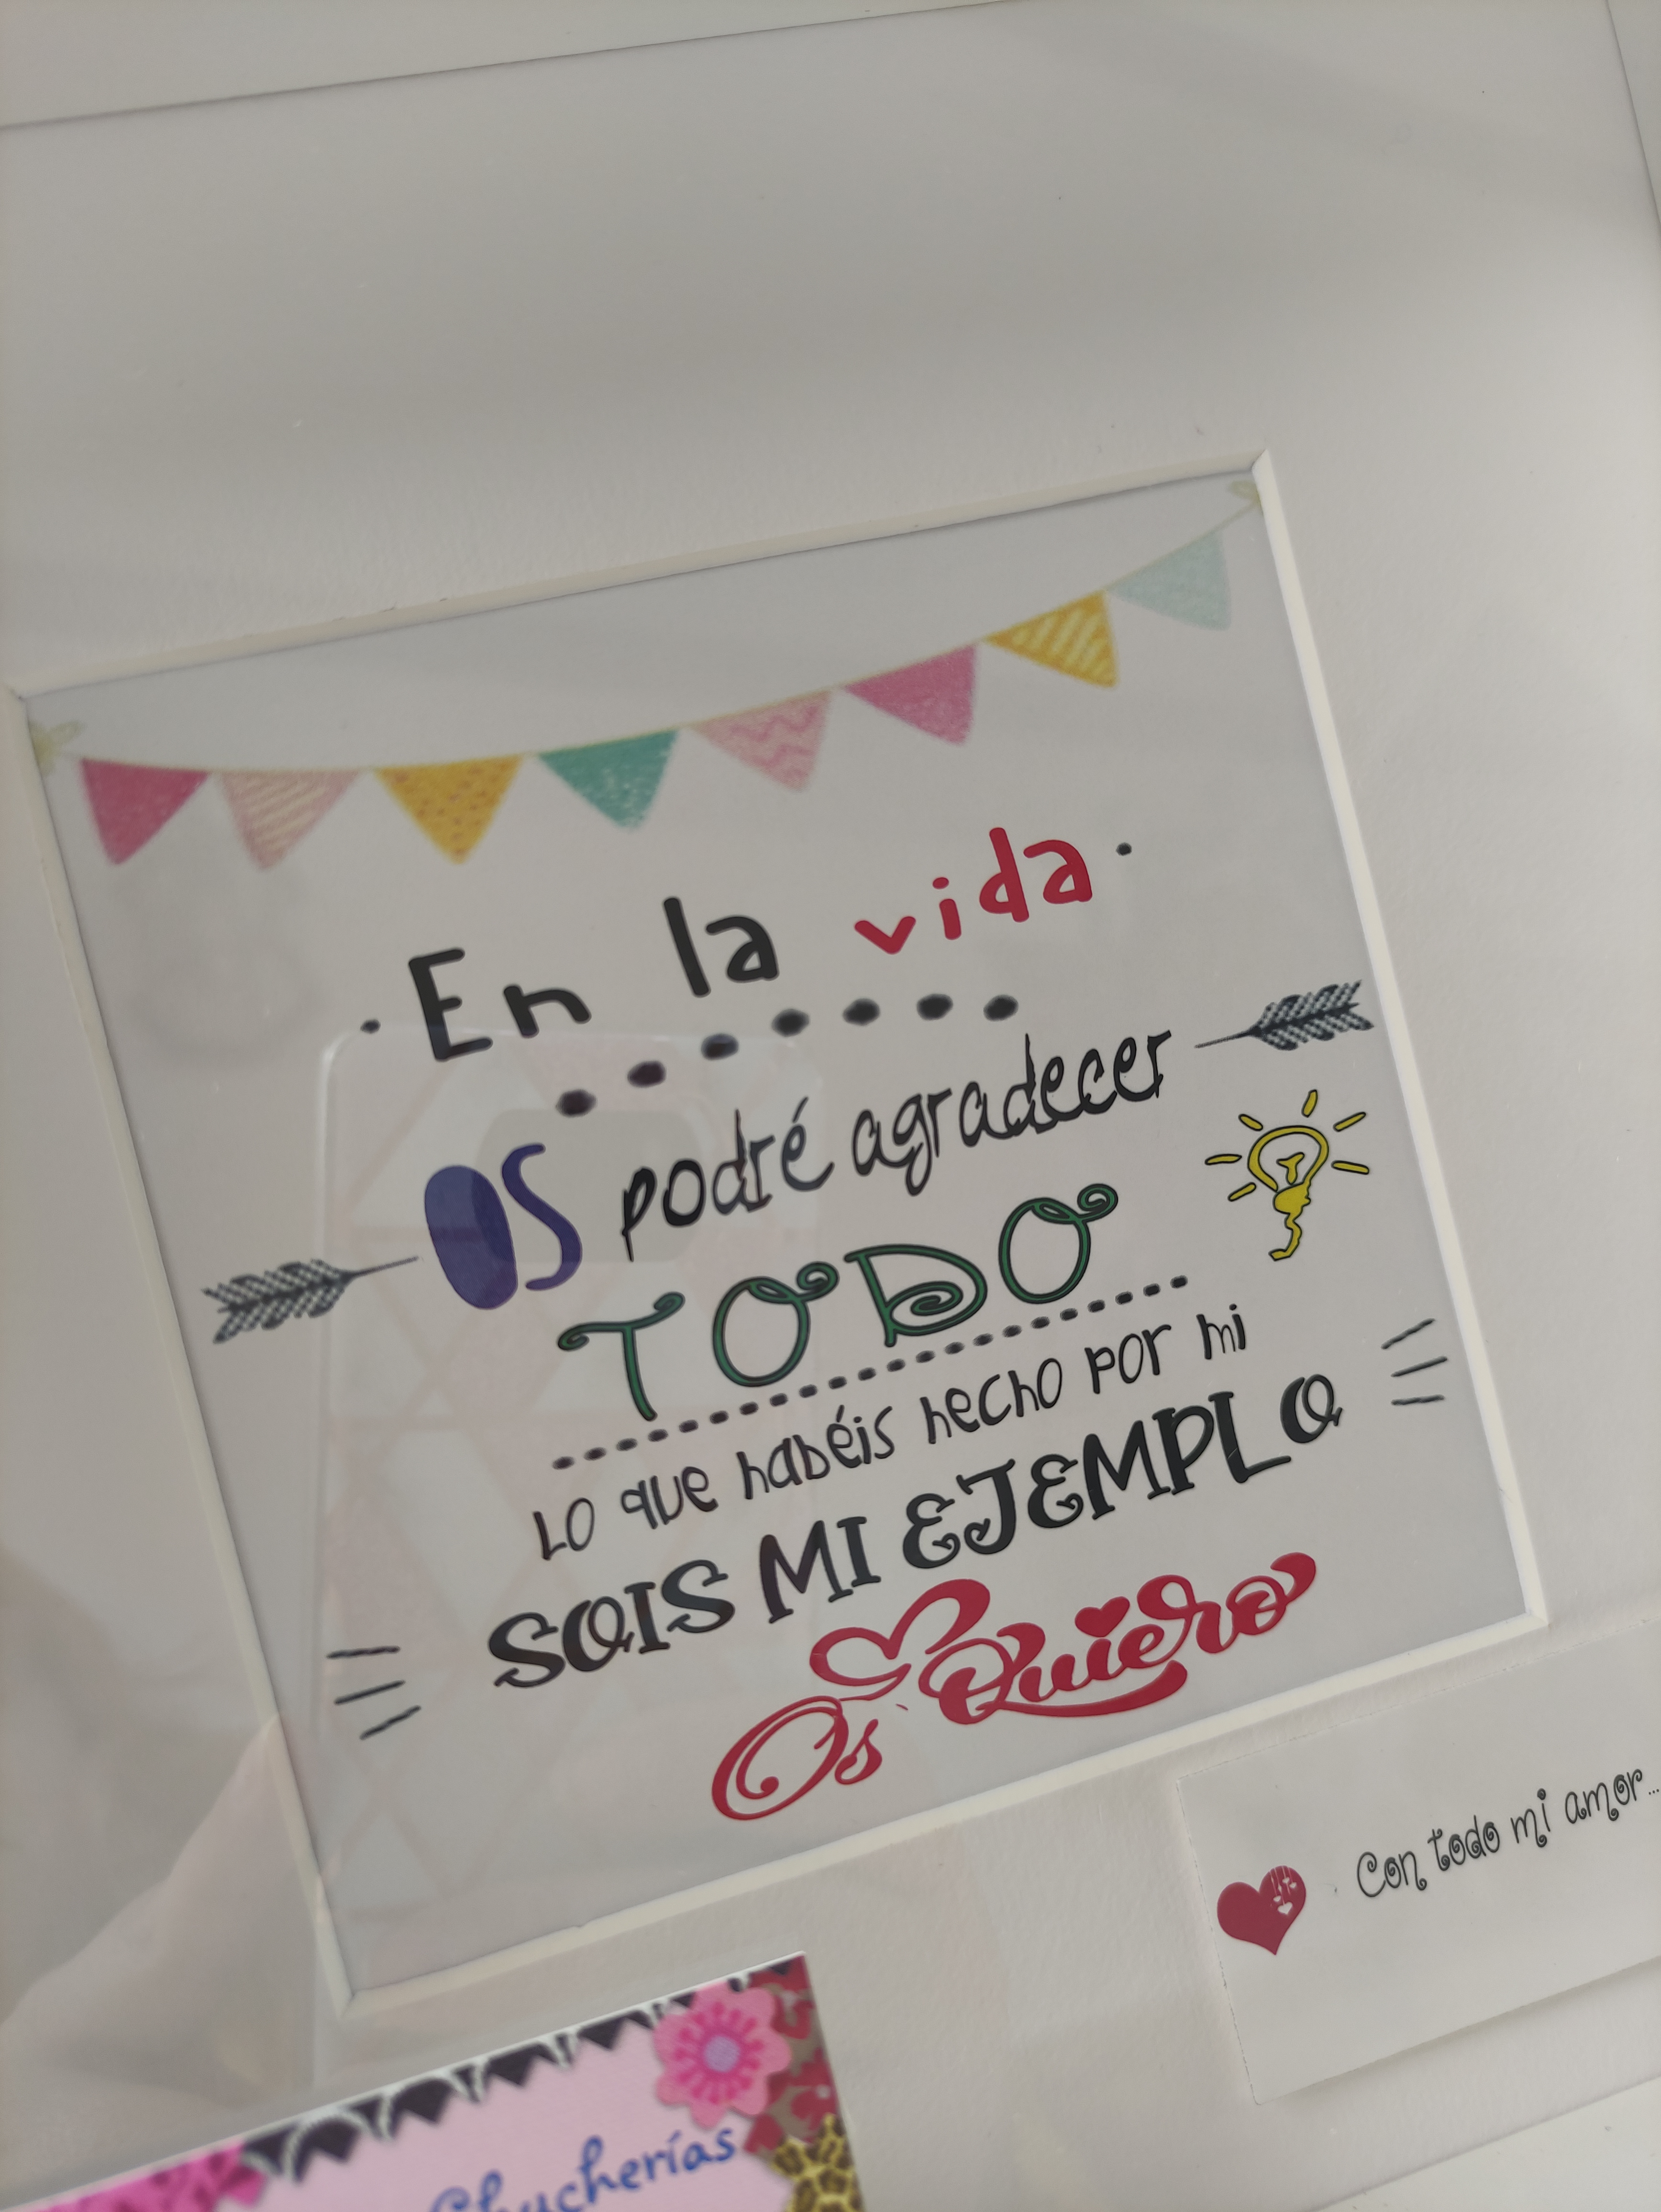 En la vida
os podré agradecer
TODO
lo que habéis hecho por mi
SOIS MI EJEMPLO
Os Quiero
Con todo mi amor...
Chucherías